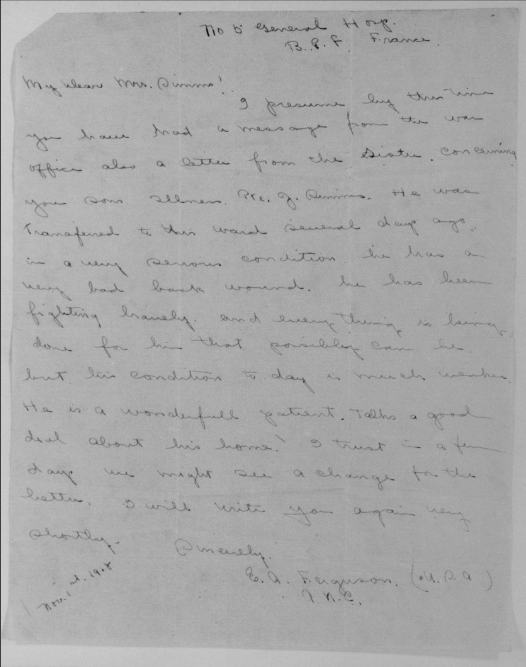 No 5 General Hosp.
B.E.F. France.
My dear Mrs. Simms!
I presume by this time
you have had a message from the war
office also a letter from the Sister. concerning
you sons illness. Pte. J. Simms. He was
Transfered to this ward several days ago,
in a very serious condition he has a
very bad back wound. he has been
fighting bravely. and every thing is being
done for him that possibly can be
but his condition to day is much weaker.
He is a wonderfull patient. Talks a good
deal about his home! I trust in a few
days we might see a change for the
better. I will write you again very
shortly.
Sincerely.
E. A. Ferguson. (U.S.A)
A.N.C.
Nov. 1 st. 1918